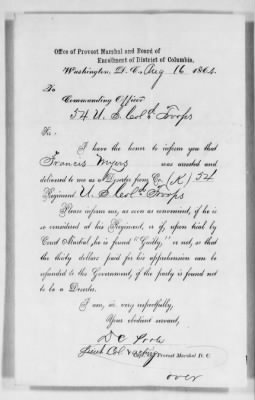 Office of Provost Marshal and Board of
Enrollment of District of Columbia,
Washington, D. C., Aug 16 1864.
To
Commanding Officer
54 U. S. Cold Troops
Sir.
I have the honor to inform you that
Francis Myers was arrested and
delivered to me as a Deserter from Co. (K) 54
Regiment U. S. Cold Troops
Please inform me, as soon as convenient, if he is
so considered at his Regiment, or if, upon trial by
Court Martial, he is found "Guilty," or not, so that
the thirty dollars paid for his apprehension can be
refunded to the Government, if the party is found not
to be a Deserter.
I am, sir, very respectfully,
Your obedient servant,
Lieut Col. Provost Marshal D. C.
over